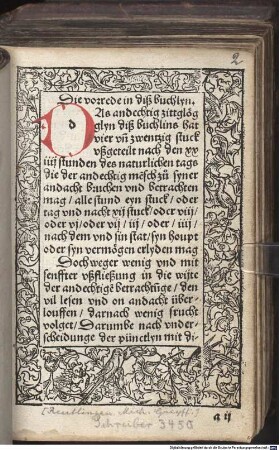 2
Die vorrede in diß buchlyn.
DAs andechtig zittglög
glyn diß buchlins hat
vier vñ zwentzig stuck
vßgeteilt nach den xx
iiij stunden des naturlichen tags
die der andechtig mẽsch zů syner
andacht bruchen vnd betrachten
mag / alle stund eyn stuck / oder
tag vnd nacht xij stuck / oder viij /
oder vj / oder vj / iij / oder / iiij /
nach dem vnd sin stat / syn houpt
oder syn vermögen erlyden mag
Doch weger wenig vnd mit
senffter vßfließung in die wijte
der andechtigẽ betrachtũge / den
vil lesen vnd on andacht über⸗
louffen / darnach wenig frucht
volget / Darumbe nach vnder⸗
scheidunge der pũnctlyn mit di⸗
a ij
[Reutlingen, Mich. Greyff.]
Schreiber 3450